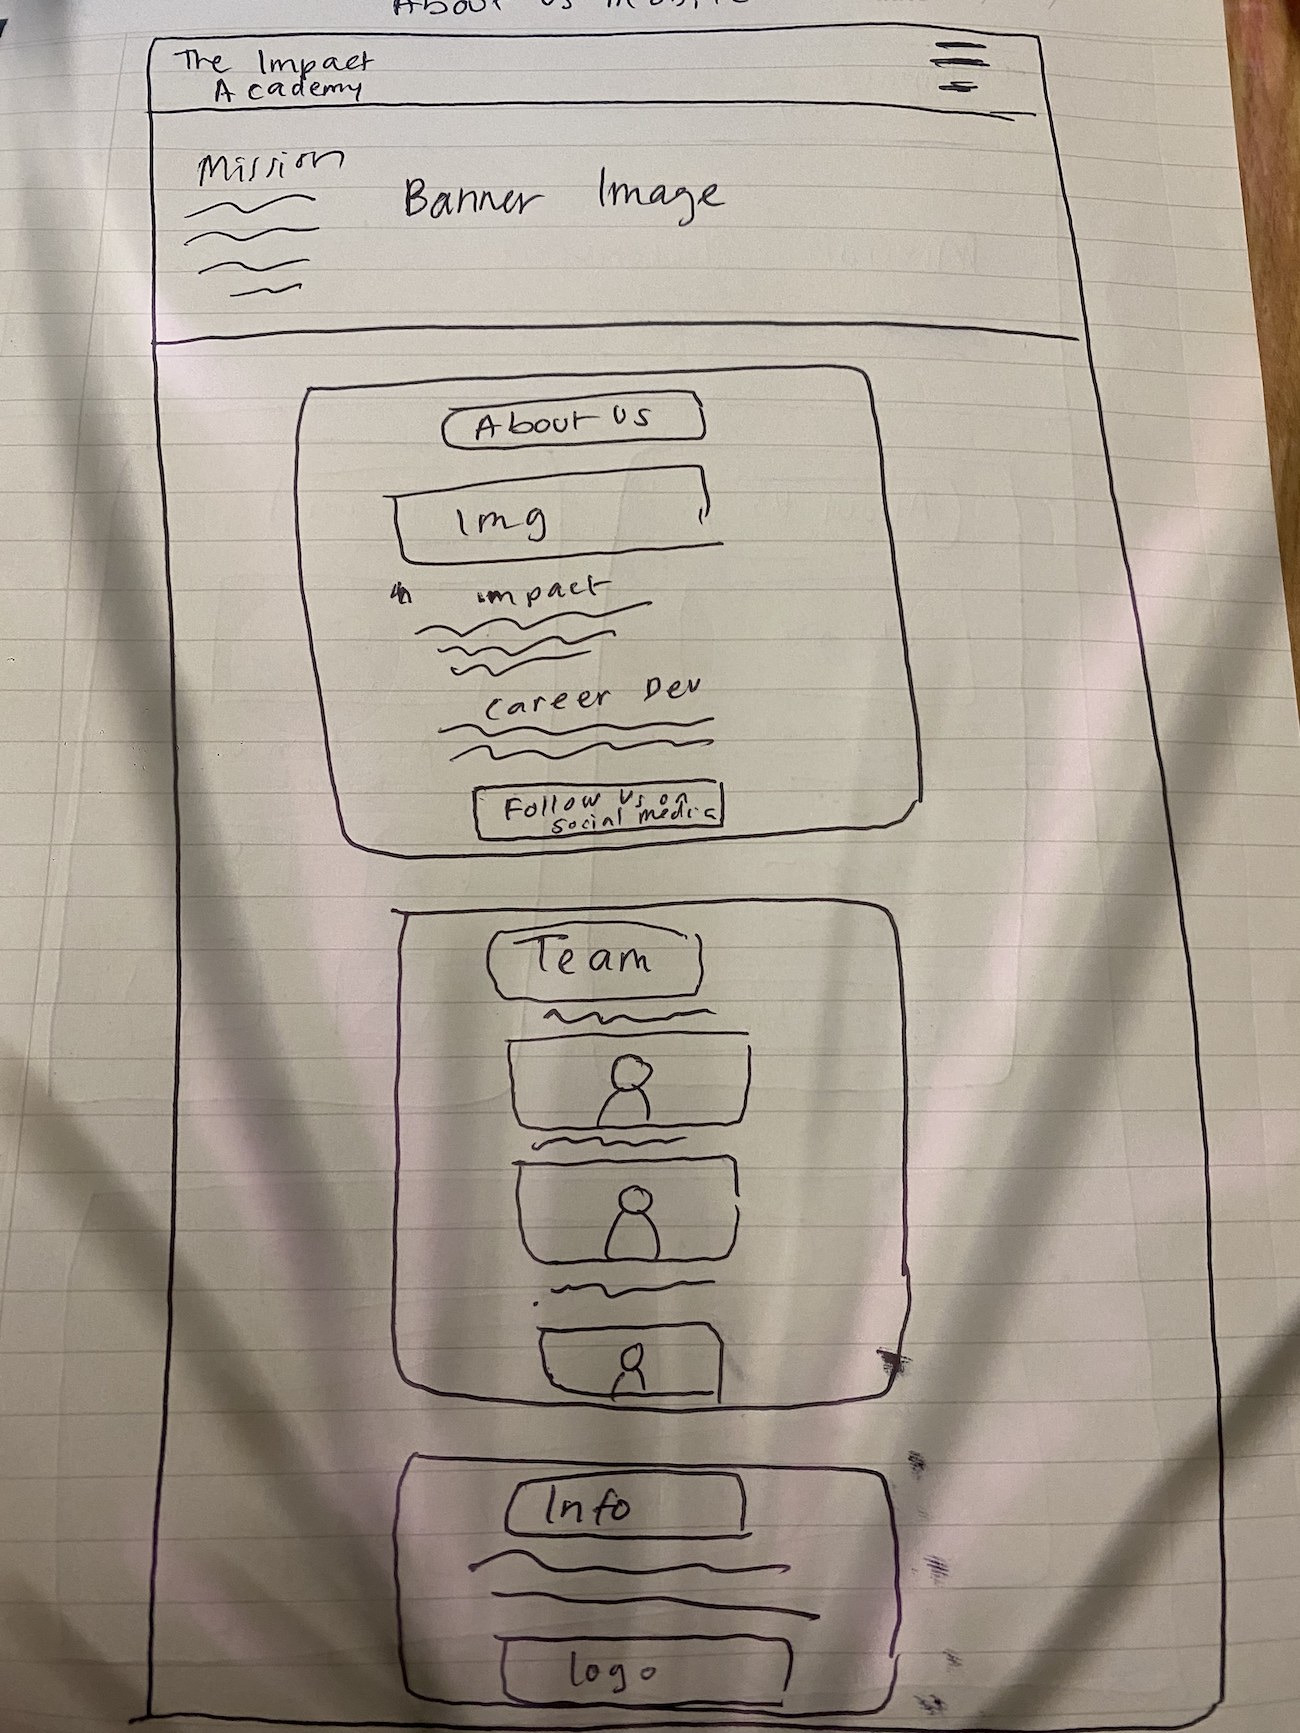 About us mobile
The Impact
Academy
Mission
Banner Image
About us
Img
impact
Career Dev
Follow us on
social media
Team
Info
logo